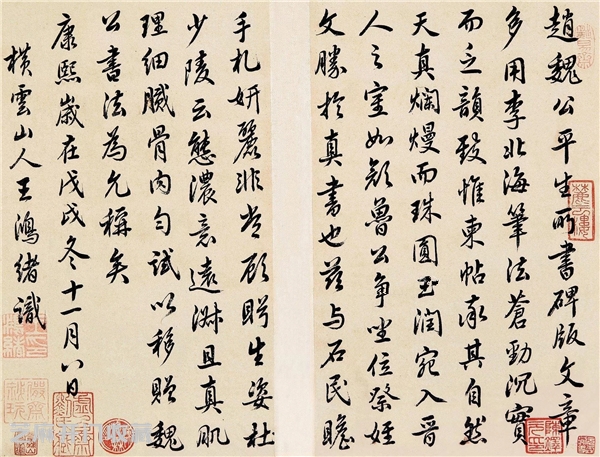 趙魏公平生所書碑版文章
多用李北海筆法蒼勁沉實
而乏韻致惟柬帖承其自然
天真爛熳而珠圓玉潤宛入晉
人之室如顏魯公爭坐位祭姪
文勝於真書也茲與石民瞻
手札妍麗非常顧盼生姿杜
少陵云態濃意遠淑且真肌
理細膩骨肉勻試以移贈魏
公書法為允稱矣
康熙歲在戊戌冬十一月八日
橫雲山人王鴻緒識